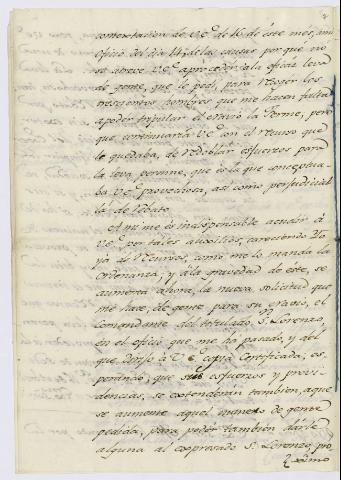 contextacion de V.e de 16 de éste més, ami
oficio del dia 14, de las causas por que no
se atreve V.e aproceder ala oficia leva
de gente, que le pedi, para reaser los
trescientos hombres que me hacen falta
apoder tripular el navio la Ferme, pero
que continuaría V.e con el recurso que
le quedaba, de redoblar esfuerzos para
la leva, perenne, que és la que conceptua-
ba V.e provechosa, asi como perjudicial
la de rebato.
A mi me és indispensable acudir á
V.e por tales auxilios, careciendo Yo
ya de recursos, como me lo manda la
ordenanza; y ála gravedad de éste, se
aumenta ahora, la nueva solicitud que
me hace, de gente para su navio, el
Comandante del titulado S.n Lorenzo,
én el oficio que me ha pasado, y del
que dirijo á V.e copia certificada; es-
perando, que sus esfuerzos y provi-
dencias, se extenderán tambien, aque
se aumente aquel numero de gente
pedida, para poder tambien darle
alguna al expresado S. Lorenzo, pró
ximo